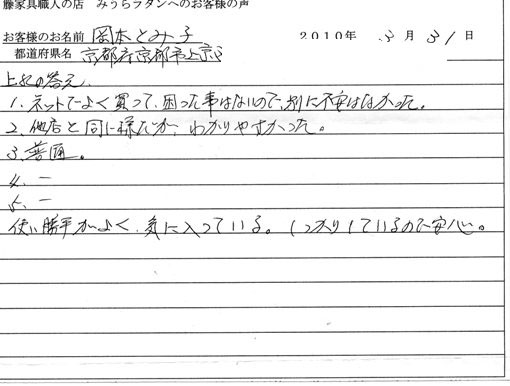 藤家具職人の店 みうらラタンへのお客様の声
お客様のお名前 岡本とみ子 2010年 3月 31日
都道府県名 京都府京都市上京区
上記の答え
1、ネットでよく買って、困った事はないので、別に不安はなかった。
2、他店と同じ様だが、わかりやすかった。
3、普通。
4、ー
5、ー
使い勝手がよく、気に入っている。しっかりしているので安心。